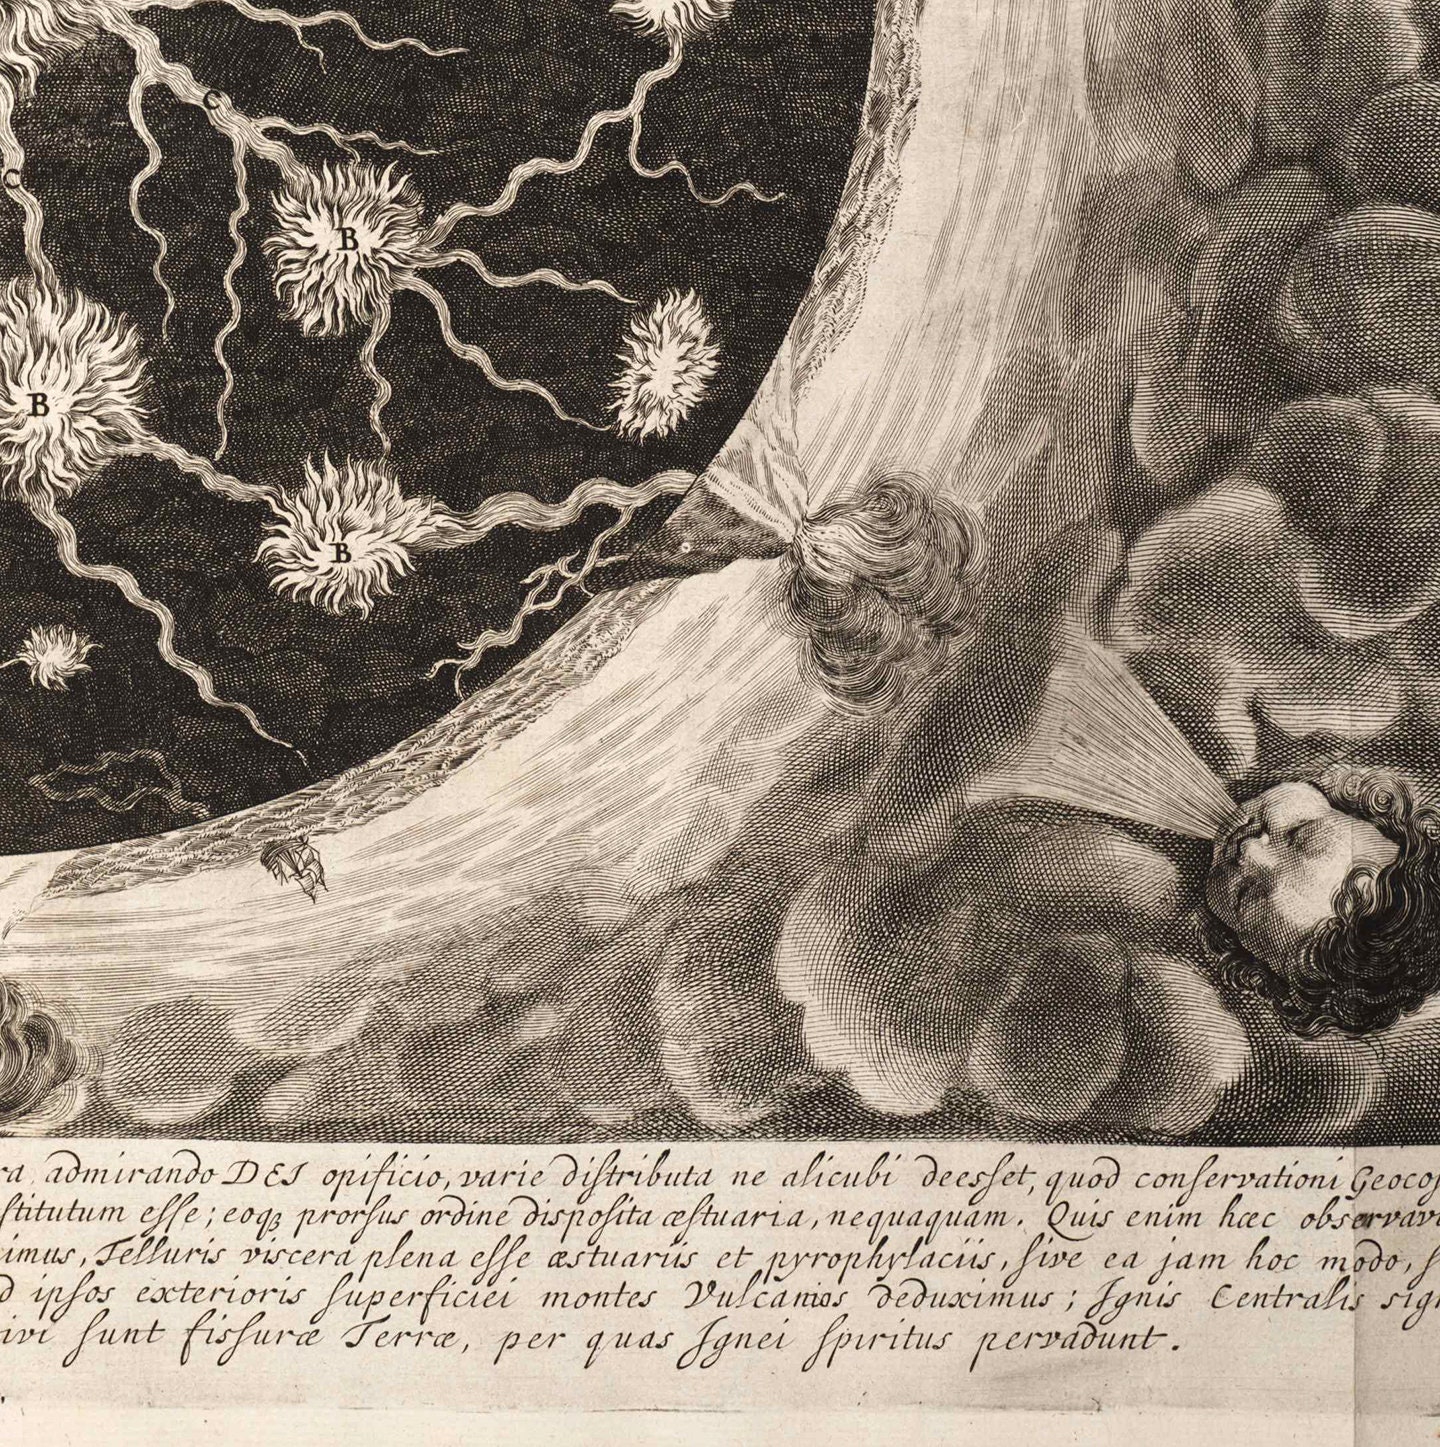 C
C
B
B
B
ra admirando DEI opificio, varie distributa ne alicubi deesset, quod conservationi Geocos
stitutum esse; eoqꝫ prorsus ordine disposita æstuaria, nequaquam. Quis enim hæc observavi
imus, Telluris viscera plena esse æstuariis et pyrophylaciis, sive ea jam hoc modo, s
d ipsos exterioris superficiei montes Vulcanios deduximus; Ignis Centralis sign
ivi sunt fissuræ Terræ, per quas Ignei spiritus pervadunt.